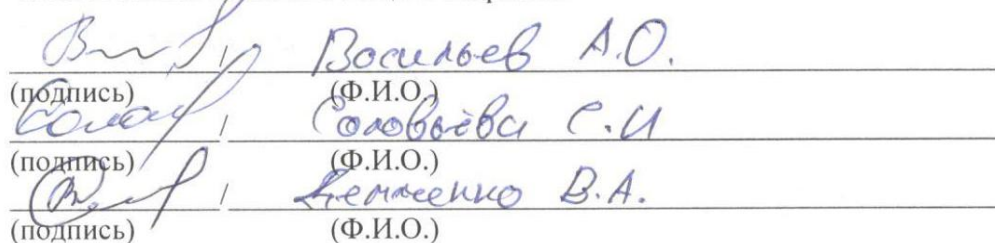 / Васильев А.О.
(подпись) (Ф.И.О.)
/ Соловьёва С.И
(подпись) (Ф.И.О.)
/ Демченко В.А.
(подпись) (Ф.И.О.)